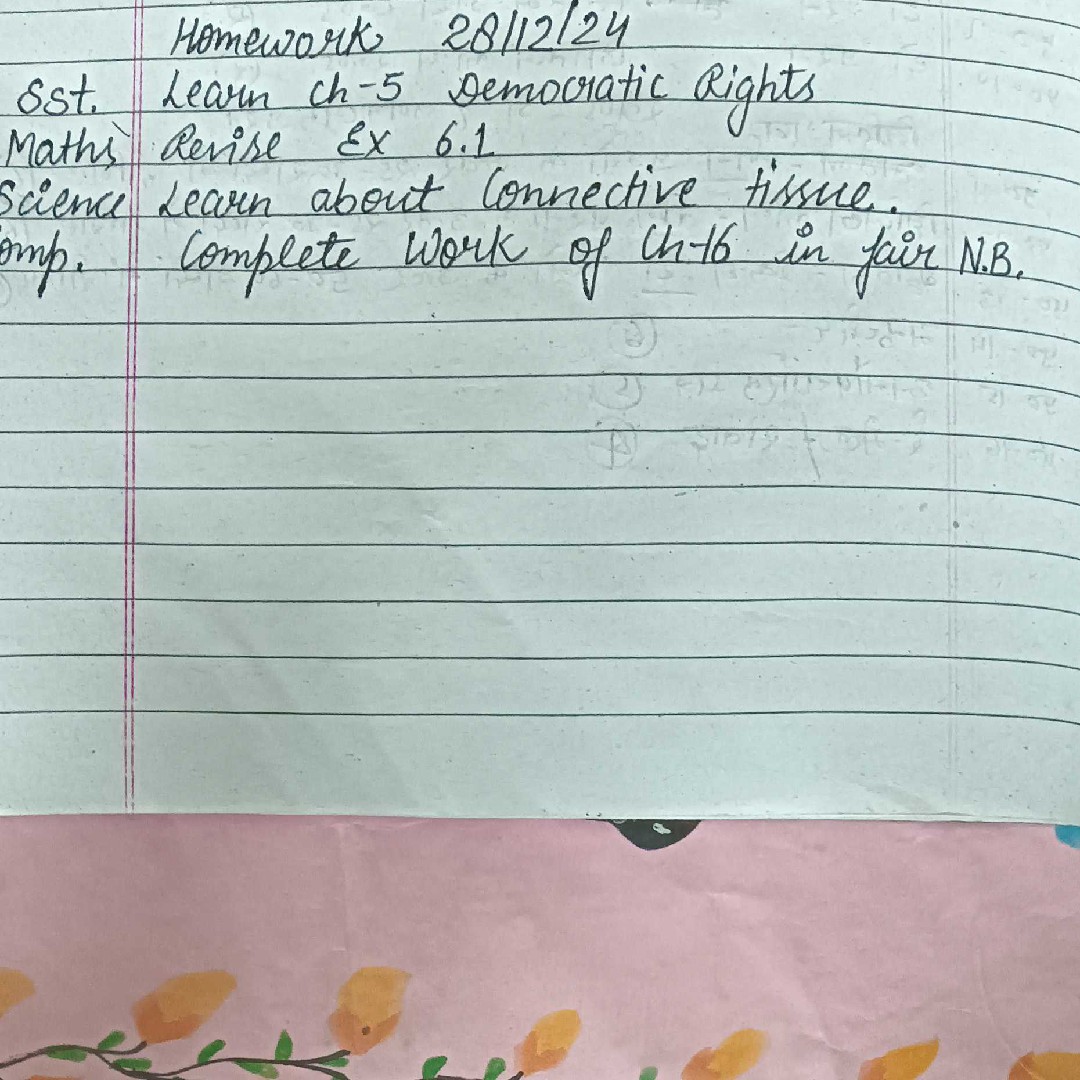 Homework 28/12/24
Sst. Learn ch-5 Democratic Rights
Maths Revise Ex 6.1
Science Learn about Connective tissue.
omp. Complete Work of Ch-16 in fair N.B.